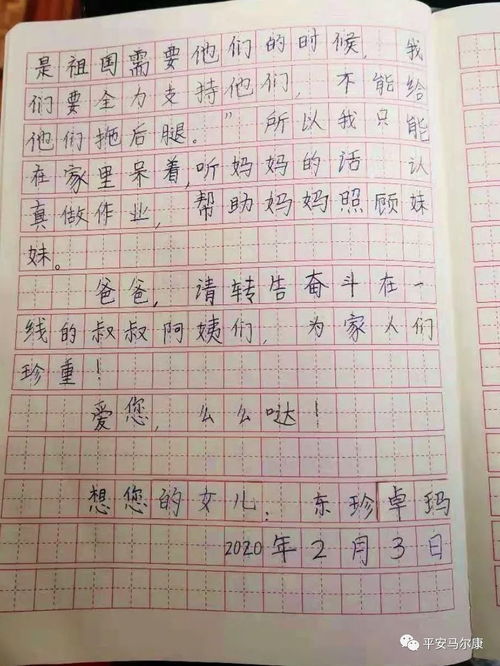 是祖国需要他们的时候，我
们要全力支持他们，不能给
他们拖后腿。”所以我只能
在家里呆着，听妈妈的话，认
真做作业，帮助妈妈照顾妹
妹。
爸爸，请转告奋斗在一
线的叔叔阿姨们，为家人们
珍重！
爱您，么么哒！
想您的女儿：东珍卓玛
2020年2月3日
平安马尔康